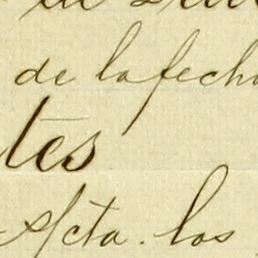 de la fech
tes
Acta. los